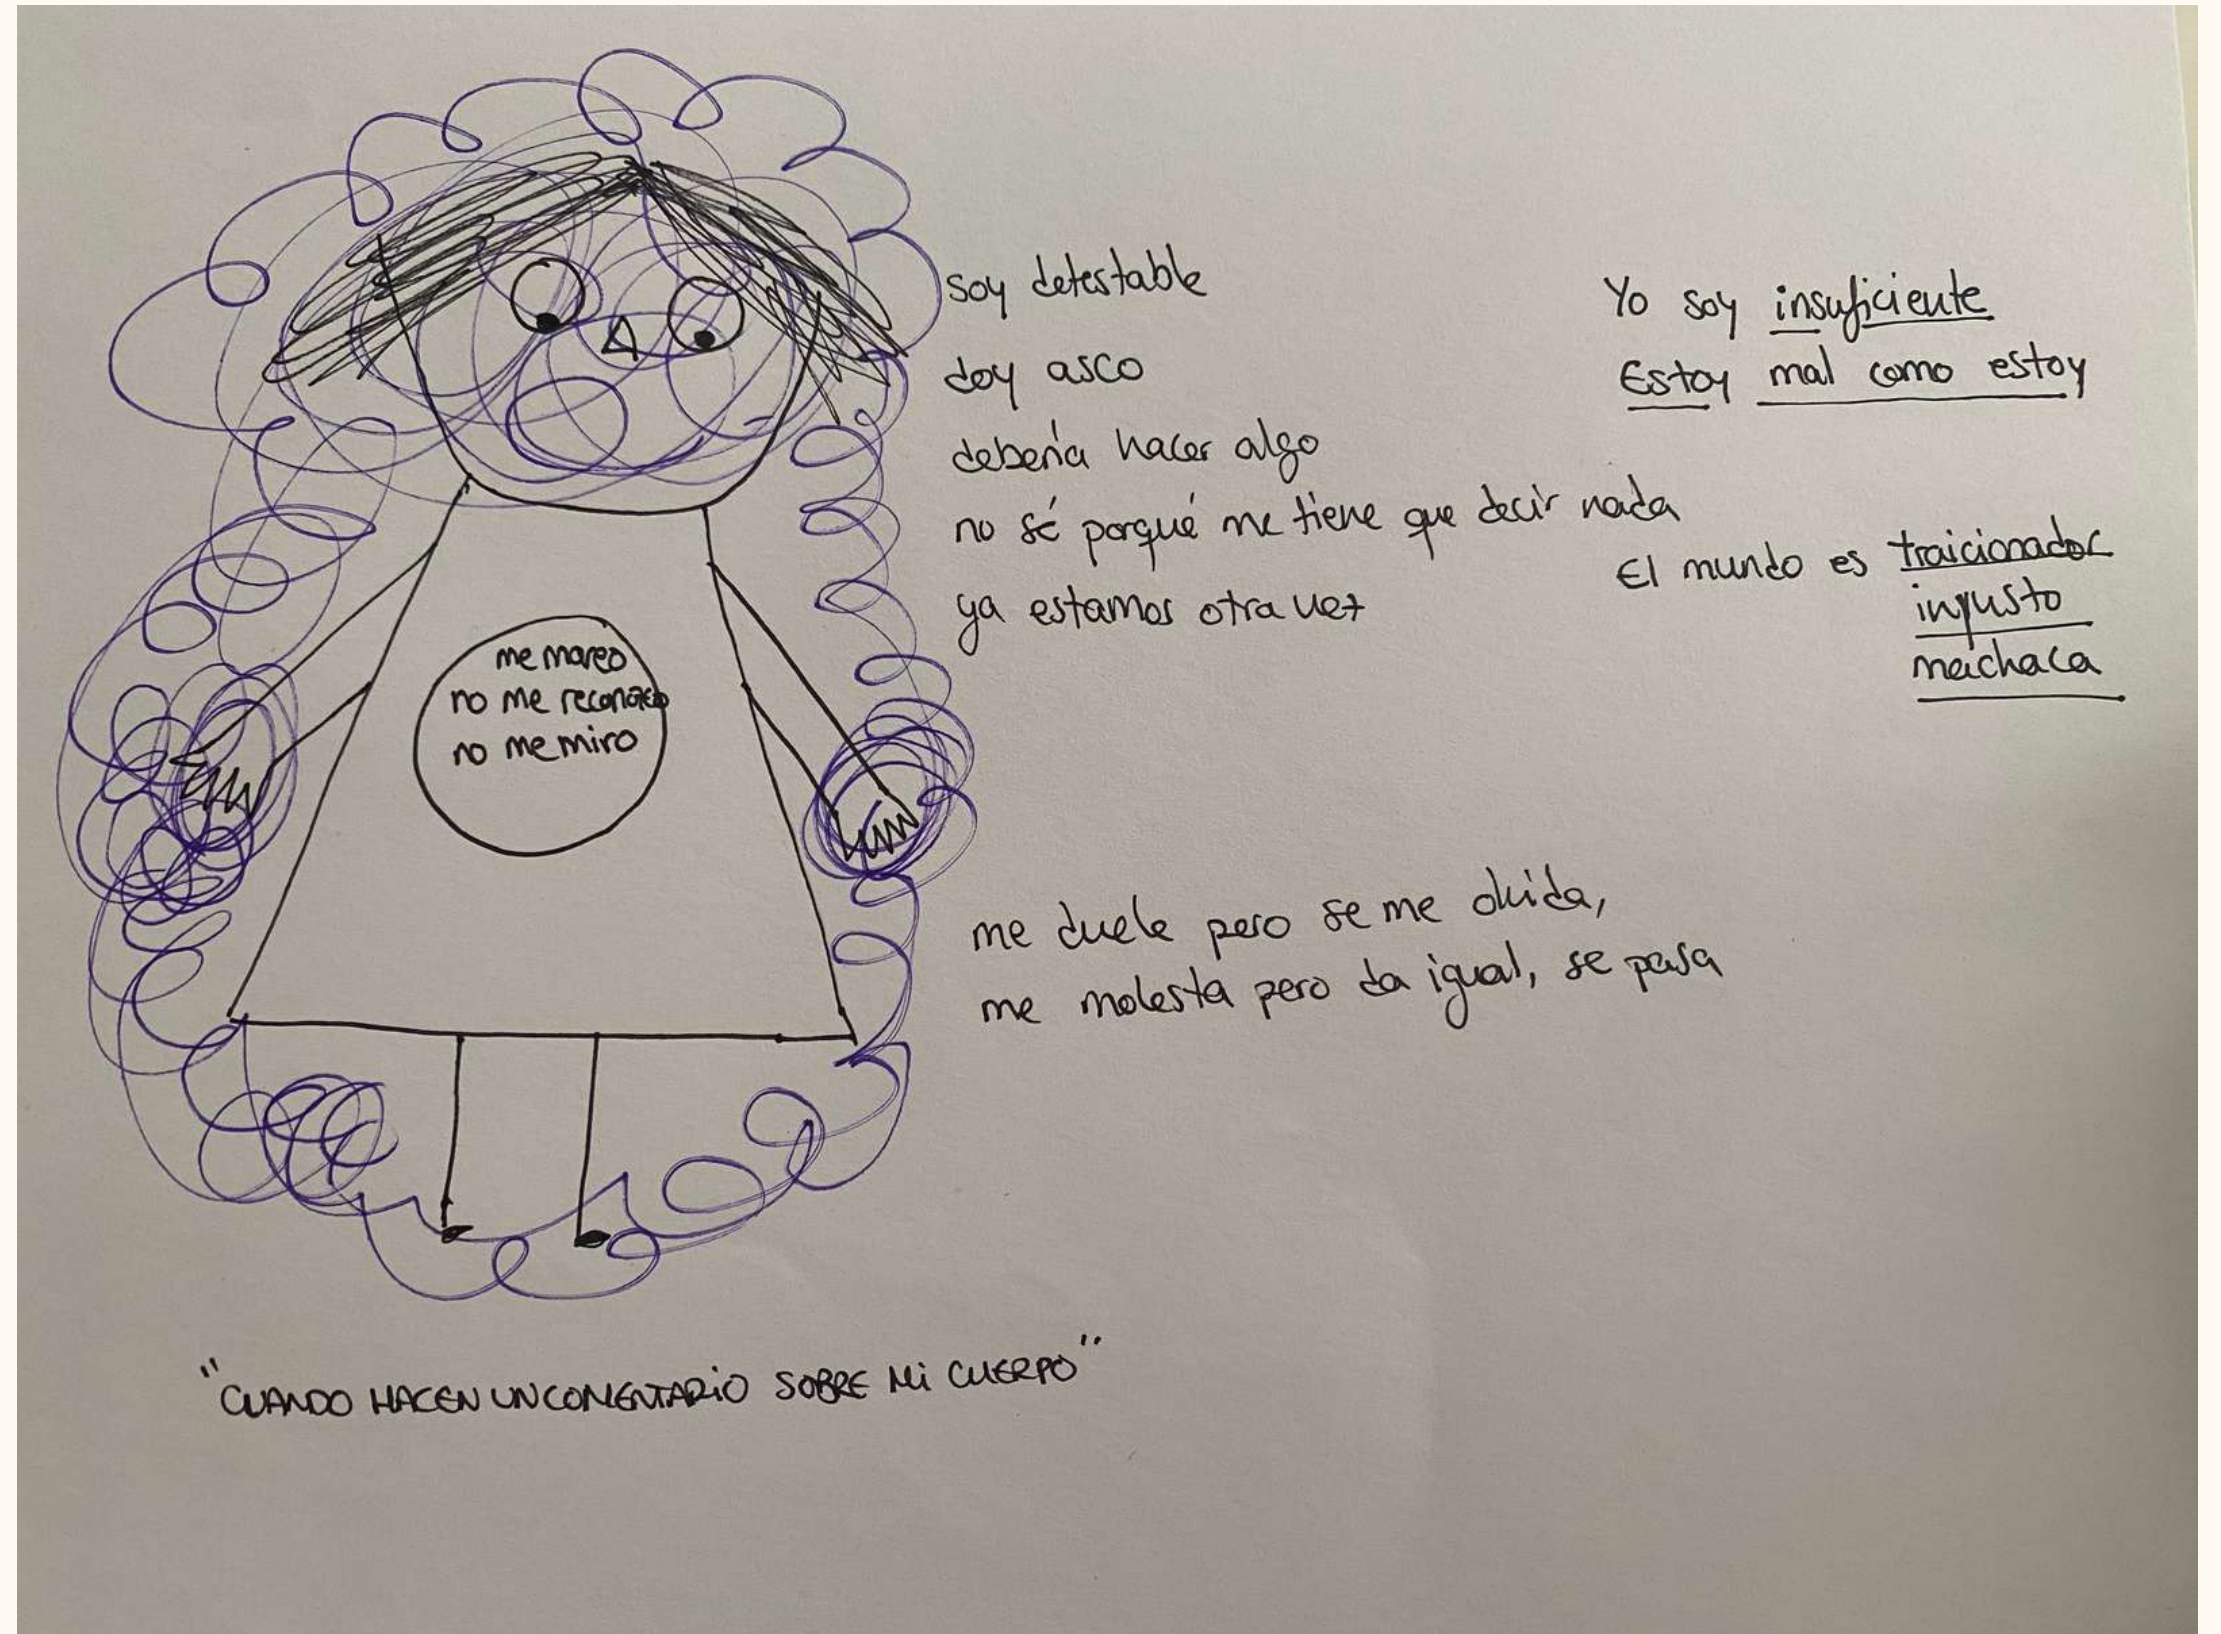 soy detestable
doy asco
debería hacer algo
no sé porqué me tiene que decir nada
ya estamos otra vez
Yo soy insuficiente
Estoy mal como estoy
El mundo es traicionador
injusto
machaca
me mareo
no me reconozco
no me miro
me duele pero se me olvida,
me molesta pero da igual, se pasa
"CUANDO HACEN UN COMENTARIO SOBRE MI CUERPO"